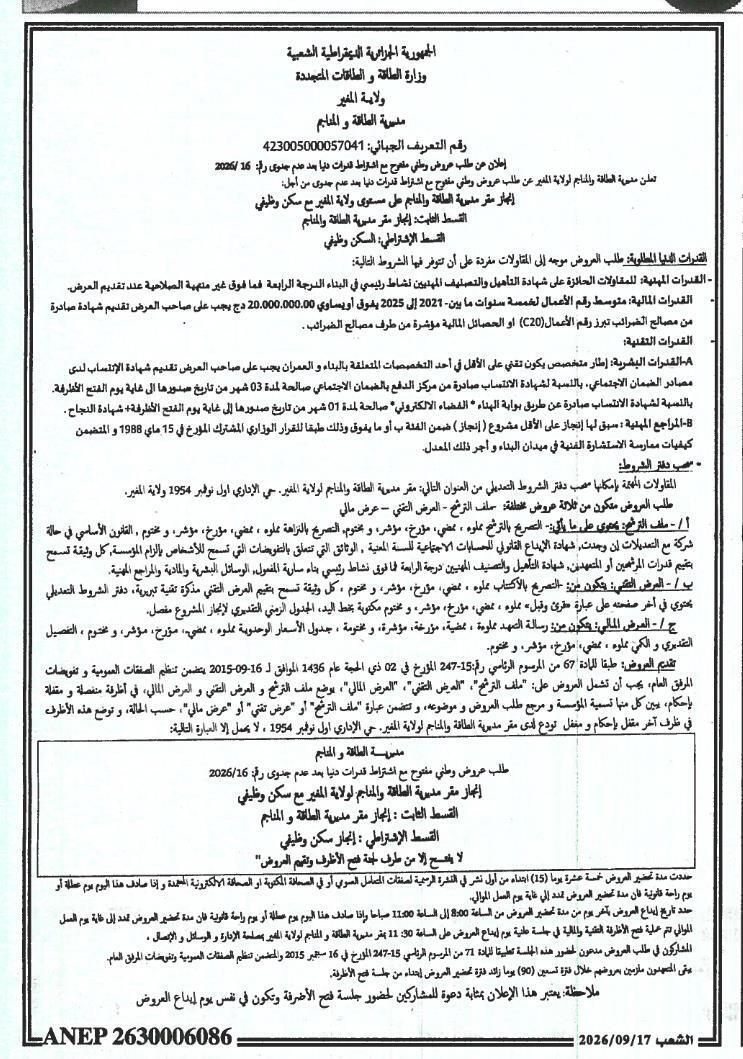 الجمهورية الجزائرية الديمقراطية الشعبية
وزارة الطاقة و الطاقات المتجددة
ولاية المغير
مديرية الطاقة و المناجم
رقم التعريف الجبائي: 423005000057041
إعلان عن طلب عروض وطني مفتوح مع اشتراط قدرات دنيا بعد عدم جدوى رقم: 16 /2026
تعلن مديرية الطاقة والمناجم لولاية المغير عن طلب عروض وطني مفتوح مع اشتراط قدرات دنيا بعد عدم جدوى من أجل:
إنجاز مقر مديرية الطاقة والمناجم على مستوى ولاية المغير مع سكن وظيفي
القسط الثابت: إنجاز مقر مديرية الطاقة والمناجم
القسط الإشتراطي: السكن وظيفي
القدرات الدنيا المطلوبة: طلب العروض موجه إلى المقاولات مفردة على أن تتوفر فيها الشروط التالية:
- القدرات المهنية: للمقاولات الحائزة على شهادة التأهيل والتصنيف المهنيين نشاط رئيسي في البناء الدرجة الرابعة فما فوق غير منتهية الصلاحية عند تقديم العرض.
- القدرات المالية: متوسط رقم الأعمال لخمسة سنوات ما بين- 2021 إلى 2025 يفوق أو يساوي 20.000.000.00 دج يجب على صاحب العرض تقديم شهادة صادرة
من مصالح الضرائب تبرز رقم الأعمال(C20) او الحصائل المالية مؤشرة من طرف مصالح الضرائب .
- القدرات التقنية:
A-القدرات البشرية: إطار متخصص يكون تقني على الأقل في أحد التخصصات المتعلقة بالبناء و العمران يجب على صاحب العرض تقديم شهادة الإنتساب لدى
مصادر الضمان الاجتماعي. بالنسبة لشهادة الانتساب صادرة من مركز الدفع بالضمان الاجتماعي صالحة لمدة 03 شهر من تاريخ صدورها الى غاية يوم الفتح الأظرفة.
بالنسبة لشهادة الانتساب صادرة عن طريق بوابة الهناء " الفضاء الالكتروني" صالحة لمدة 01 شهر من تاريخ صدورها إلى غاية يوم الفتح الأظرفة+ شهادة النجاح .
B-المراجع المهنية : سبق لها إنجاز على الأقل مشروع ( إنجاز ) ضمن الفئة ب أو ما يفوق وذلك طبقا للقرار الوزاري المشترك المؤرخ في 15 ماي 1988 و المتضمن
كيفيات ممارسة الاستشارة الفنية في ميدان البناء و أجر ذلك المعدل.
- سحب دفتر الشروط:
المقاولات المهتمة بإمكانها سحب دفتر الشروط التعديلي من العنوان التالي: مقر مديرية الطاقة والمناجم لولاية المغير. حي الإداري اول نوفمبر 1954 ولاية المغير.
طلب العروض متكون من ثلاثة عروض مختلفة: –ملف الترشح – العرض التقني – عرض مالي
أ / - ملف الترشح: يحتوي على ما يأتي:- التصريح بالترشح مملوء ، ممضي، مؤرخ، مؤشر، و مختوم, التصريح بالنزاهة مملوء ، ممضي، مؤرخ، مؤشر، و مختوم , القانون الأساسي في حالة
شركة مع التعديلات إن وجدت, شهادة الإيداع القانوني للحسابات الاجتماعية للسنة المعنية , الوثائق التي تتعلق بالتفويضات التي تسمح للأشخاص بإلزام المؤسسة, كل وثيقة تسمح
بتقييم قدرات المرشحين أو المتعهدين, شهادة التأهيل والتصنيف المهنيين درجة الرابعة فما فوق نشاط رئيسي بناء سارية المفعول, الوسائل البشرية والمادية والمراجع المهنية.
ب / - العرض التقني: يتكون من: -التصريح بالأكتتاب مملوء ، ممضي، مؤرخ، مؤشر، و مختوم , كل وثيقة تسمح بتقييم العرض التقني مذكرة تقنية تبريرية, دفتر الشروط التعديلي
يحتوي في أخر صفحته على عبارة «قرئ وقبل» مملوء ، ممضي، مؤرخ، مؤشر، و مختوم مكتوبة بخط اليد, الجدول الزمني التقديري لإنجاز المشروع مفصل.
ج / - العرض المالي: يتكون من: رسالة التعهد مملوءة ، ممضية، مؤرخة، مؤشرة، و مختومة , جدول الأسعار الوحدوية مملوء ، ممضي، مؤرخ، مؤشر، و مختوم , التفصيل
التقديري و الكمي مملوء ، ممضي، مؤرخ، مؤشر، و مختوم.
تقديم العروض: طبقا للمادة 67 من المرسوم الرئاسي رقم:15-247 المؤرخ في 02 ذي الحجة عام 1436 الموافق لـ 16-09-2015 يتضمن تنظيم الصفقات العمومية و تفويضات
المرفق العام، يجب أن تشمل العروض على: "ملف الترشح"، "العرض التقني"، "العرض المالي"، يوضع ملف الترشح و العرض التقني و العرض المالي، في أظرفة منفصلة و مقفلة
بإحكام، يبين كل منها تسمية المؤسسة و مرجع طلب العروض و موضوعه، و تتضمن عبارة "ملف الترشح" أو "عرض تقني" أو "عرض مالي"، حسب الحالة، و توضع هذه الأظرف
في ظرف آخر مقفل بإحكام و مغفل تودع لدى مقر مديرية الطاقة والمناجم لولاية المغير. حي الإداري اول نوفمبر 1954 ، لا يحمل إلا العبارة التالية:
مديريــة الطاقة و المناجم
طلب عروض وطني مفتوح مع اشتراط قدرات دنيا بعد عدم جدوى رقم: 2026/16
إنجاز مقر مديرية الطاقة والمناجم لولاية المغير مع سكن وظيفي
القسط الثابت : إنجاز مقر مديرية الطاقة و المناجم
القسط الإشتراطي : إنجاز سكن وظيفي
لا يفتــح إلا من طرف لجنة فتح الأظرف وتقييم العروض"
حددت مدة تحضير العروض خمسة عشرة يوما (15) ابتداء من أول نشر في النشرة الرسمية لصفقات المتعامل العمومي أو في الصحافة المكتوبة او الصحافة الالكترونية المعتمدة و إذا صادف هذا اليوم يوم عطلة أو
يوم راحة قانونية فان مدة تحضير العروض تمدد إلى غاية يوم العمل الموالي.
حدد تاريخ إيداع العروض بآخر يوم من مدة تحضير العروض من الساعة 8:00 إلى الساعة 11:00 صباحا وإذا صادف هذا اليوم يوم عطلة أو يوم راحة قانونية فان مدة تحضير العروض تمدد إلى غاية يوم العمل
الموالي تتم عملية فتح الأظرفة التقنية والمالية في جلسة علنية يوم إيداع العروض على الساعة 30: 11 بمقر مديرية الطاقة و المناجم لولاية المغير بمصلحة الإدارة و الوسائل و الإتصال .
المشاركون في طلب العروض مدعون لحضور هذه الجلسة تطبيقا للمادة 71 من المرسوم الرئاسي 15-247 المؤرخ في 16 سبتمبر 2015 والمتضمن تنظيم الصفقات العمومية وتفويضات المرفق العام.
يبقى المتعهدون ملزمين بعروضهم خلال فترة تسعين (90) يوما زائد فترة تحضير العروض إبتداء من جلسة فتح الأظرفة.
ملاحظة: يعتبر هذا الإعلان بمثابة دعوة للمشاركين لحضور جلسة فتح الأضرفة وتكون في نفس يوم إيداع العروض
الشعب 2026/09/17
ANEP 2630006086